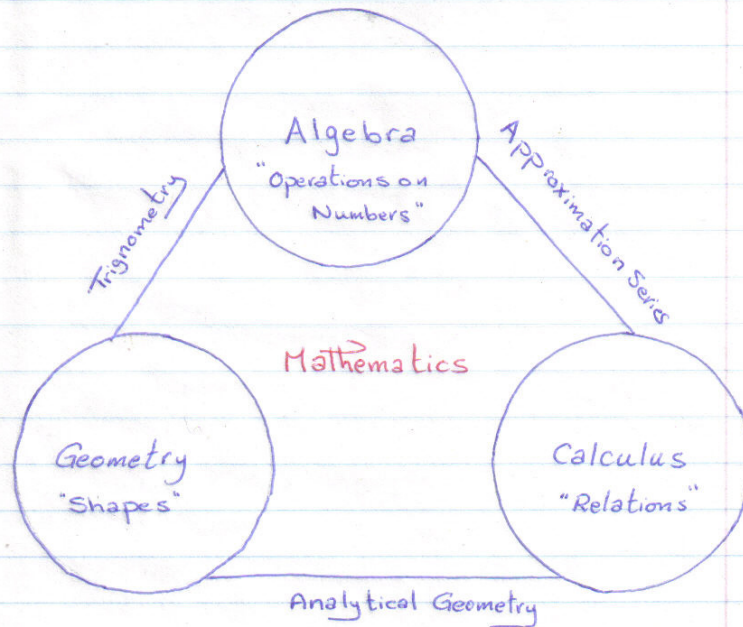 Algebra
"Operations on
Numbers"
Trignometry
Approximation Series
Mathematics
Geometry
"Shapes"
Calculus
"Relations"
Analytical Geometry